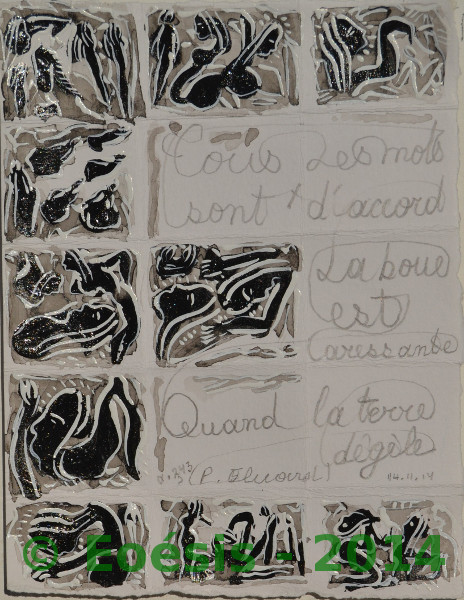 Tous Les mots
sont d'accord
La boue
est
Caressante
Quand la terre
dégèle
(P. Eluard) 14.11.14
© Eoésis - 2014